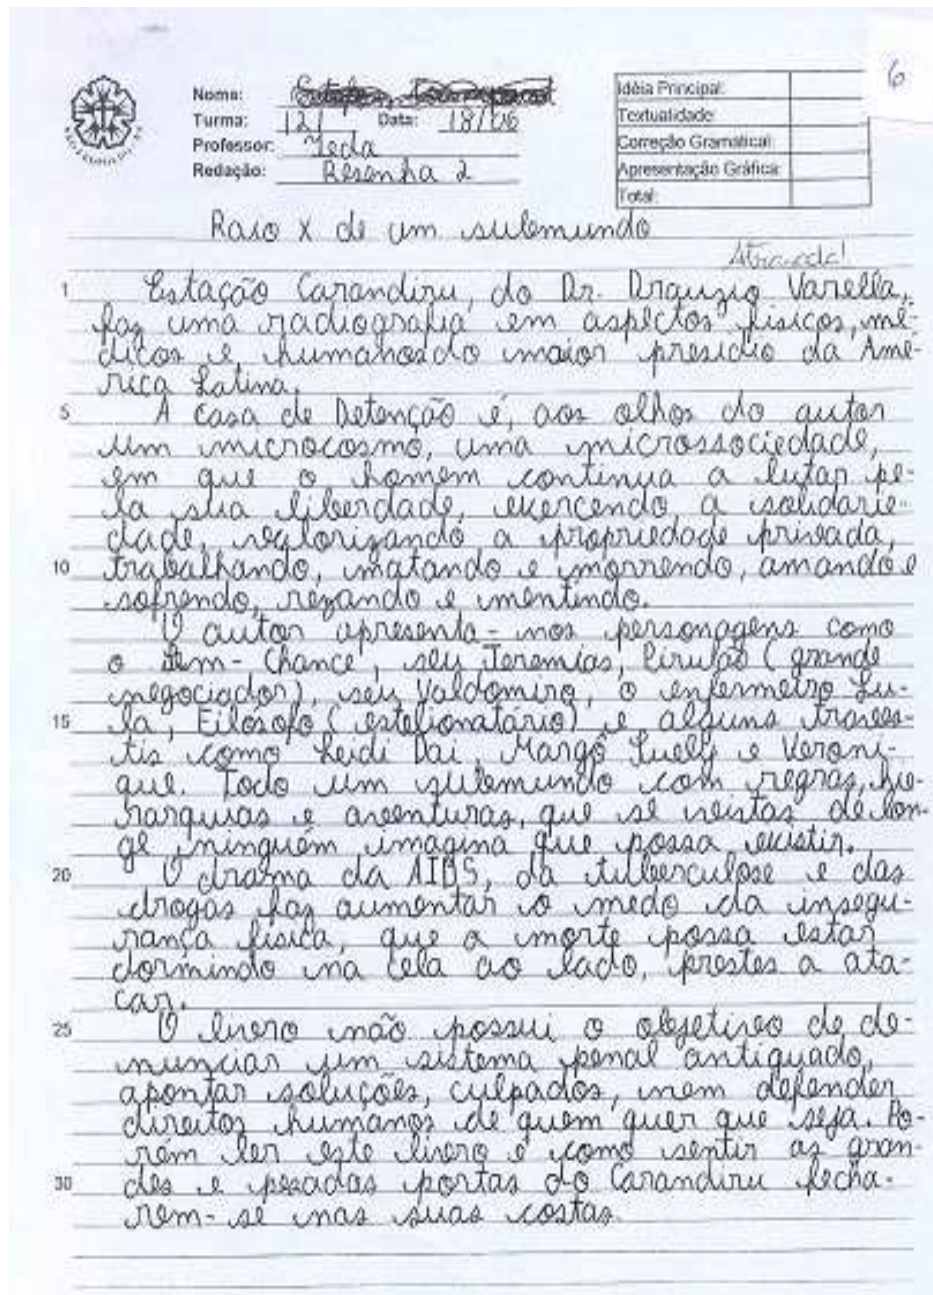 6
Nome:
Turma: 121 Data: 18/06
Professor: Ieda
Redação: Resenha 2
Idéia Principal:
Textualidade:
Correção Gramatical:
Apresentação Gráfica:
Total:
Raio X de um submundo
Atrasada!
1 Estação Carandiru, do Dr. Drauzio Varella,
faz uma radiografia em aspectos físicos, mé-
dicos e humanos do maior presídio da Amé-
rica Latina.
5 A casa de Detenção é, aos olhos do autor
um microcosmo, uma microssociedade,
em que o homem continua a lutar pe-
la sua liberdade, exercendo a solidarie-
dade, valorizando a propriedade privada,
10 trabalhando, matando e morrendo, amando e
sofrendo, rezando e mentindo.
O autor apresenta-nos personagens como
o Sem-Chance, seu Jeremias, Pirulão (grande
negociador), seu Valdomiro, o enfermeiro Lu-
15 la, Filósofo (estelionatário) e alguns traves-
tis como Leidi Dai, Margô Suelly e Veroni-
que. Todo um submundo com regras, hie-
rarquias e aventuras, que se vistas de lon-
ge ninguém imagina que possa existir.
20 O drama da AIDS, da tuberculose e das
drogas faz aumentar o medo da insegu-
rança física, que a morte possa estar
dormindo na cela ao lado, prestes a ata-
car.
25 O livro não possui o objetivo de de-
nunciar um sistema penal antiquado,
apontar soluções, culpados, nem defender
direitos humanos de quem quer que seja. Po-
rém ler este livro é como sentir as gran-
30 des e pesadas portas do Carandiru fecha-
rem-se nas suas costas.